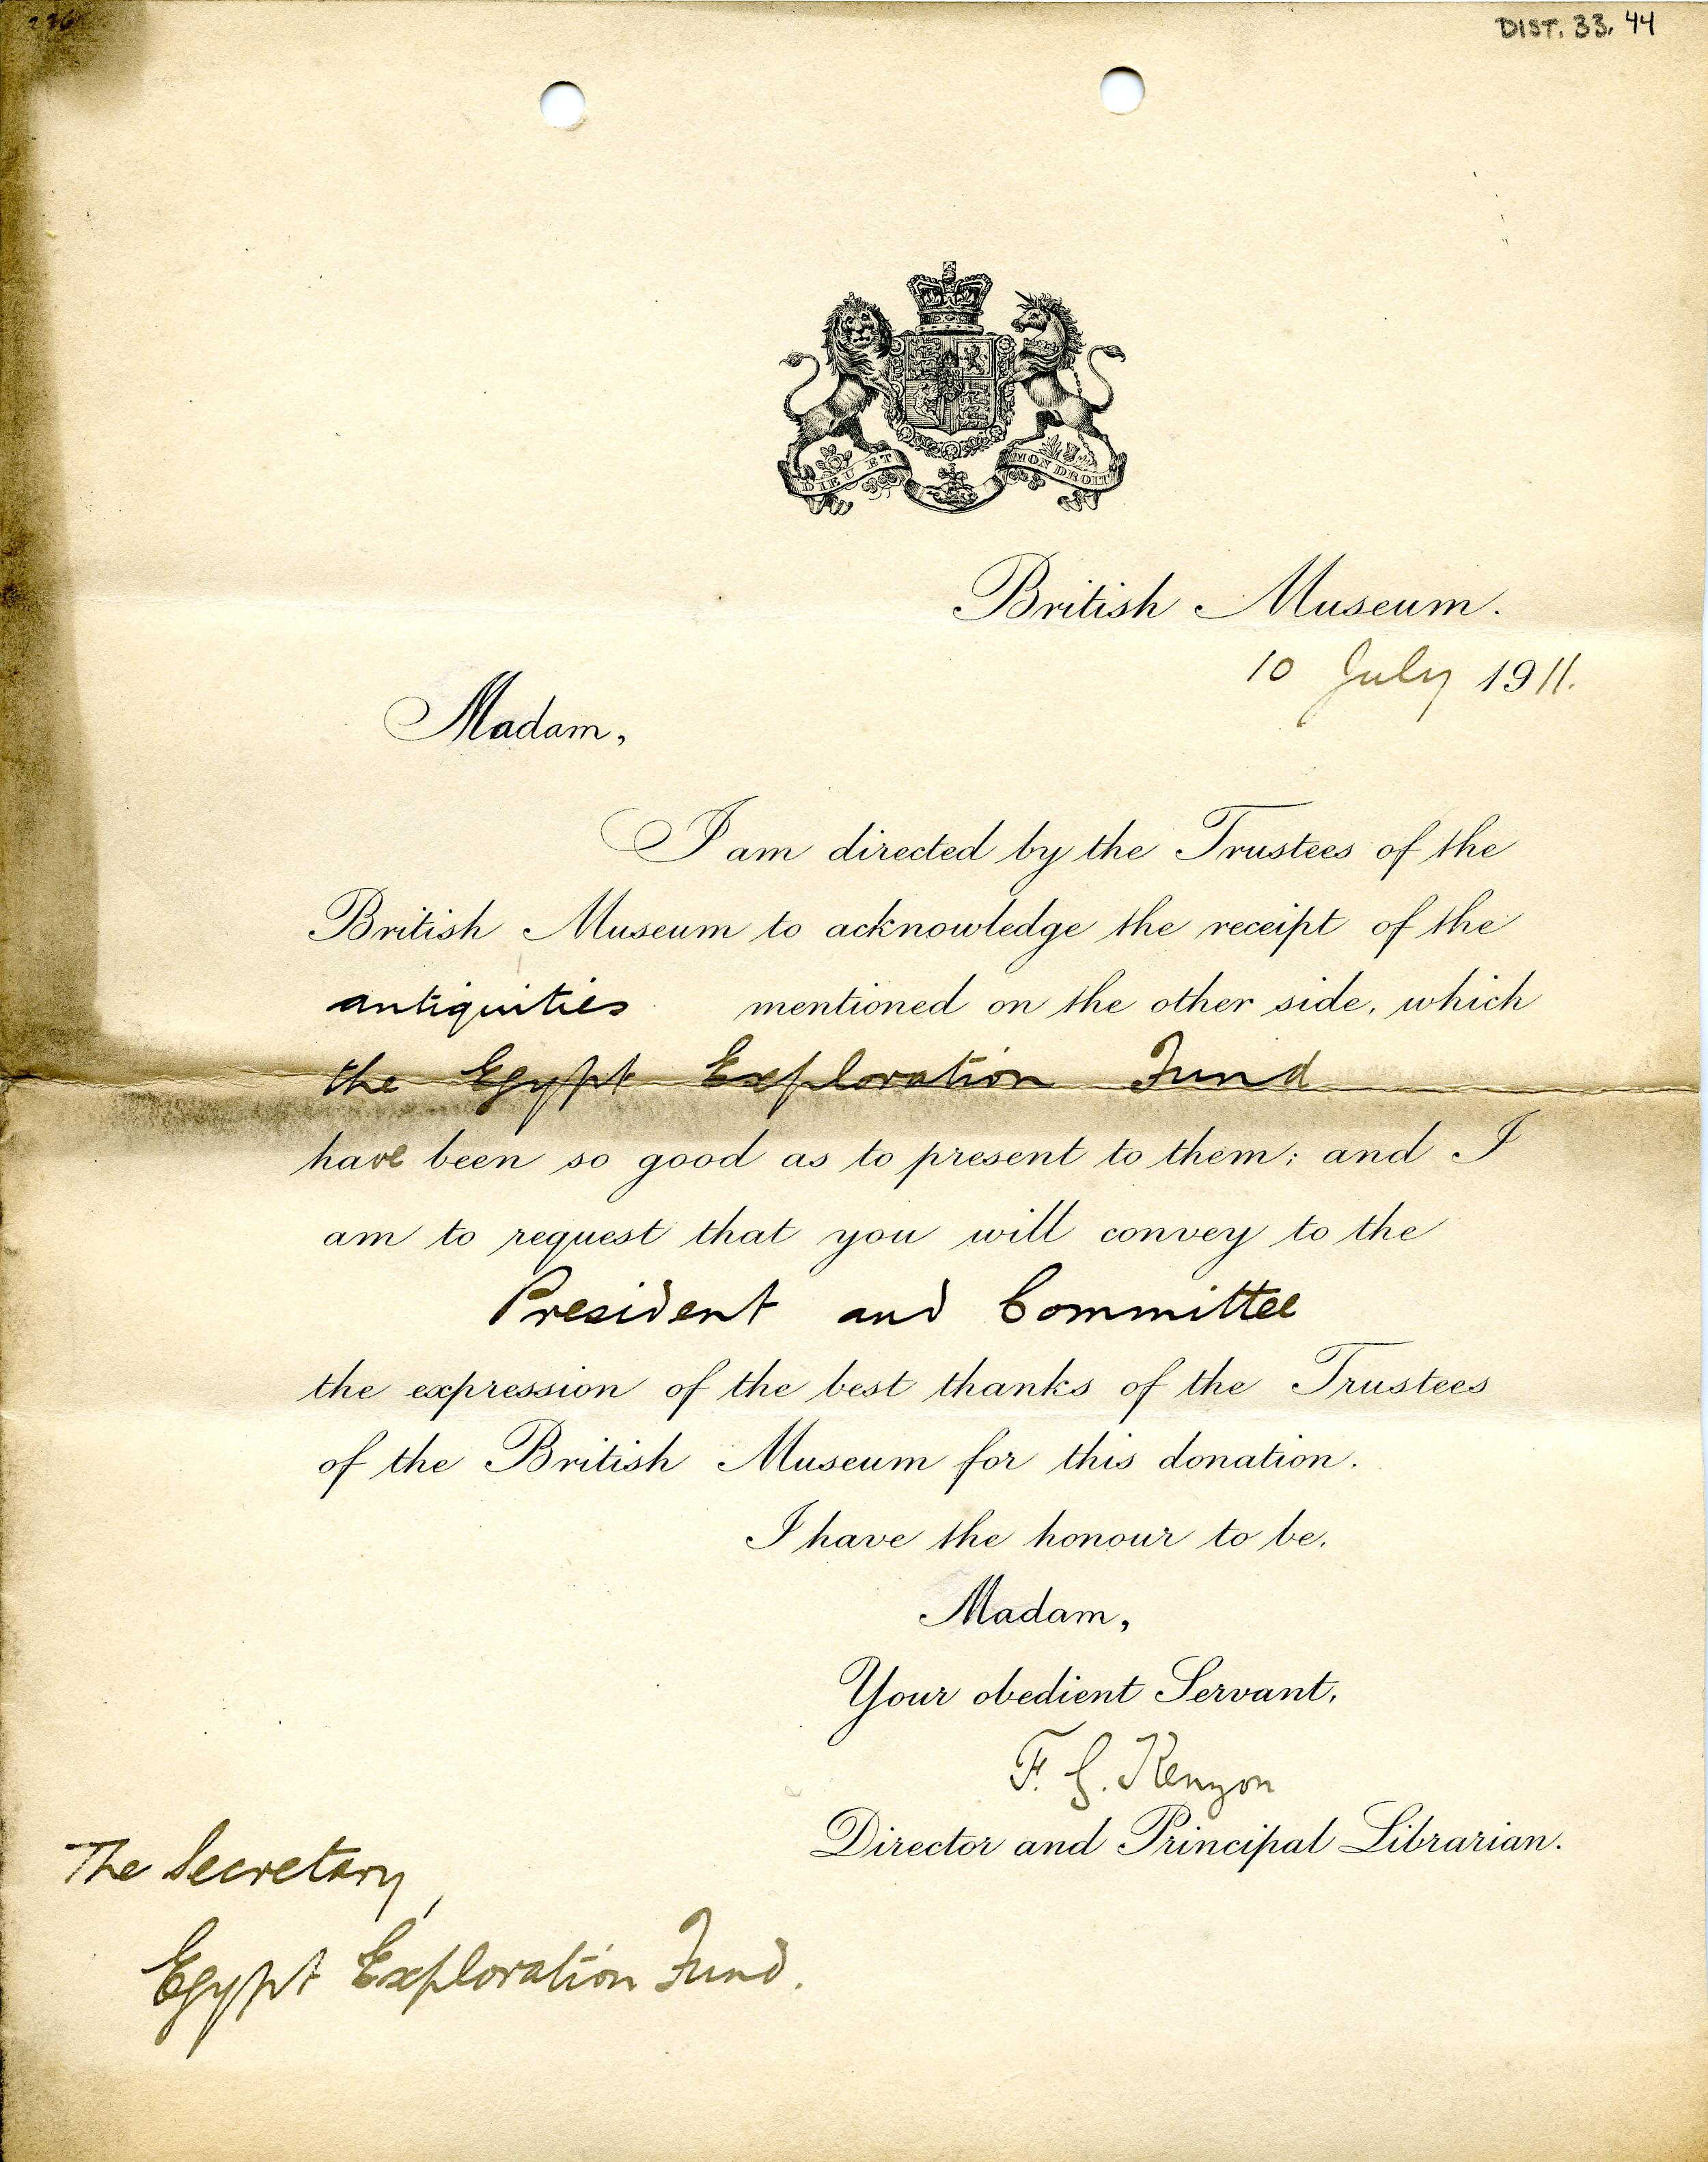 236
DIST. 33. 44
DIEU ET MON DROIT
British Museum.
10 July 1911.
Madam,
I am directed by the Trustees of the
British Museum to acknowledge the receipt of the
antiquities mentioned on the other side, which
the Egypt Exploration Fund
have been so good as to present to them; and I
am to request that you will convey to the
President and Committee
the expression of the best thanks of the Trustees
of the British Museum for this donation.
I have the honour to be,
Madam,
Your obedient Servant,
F. G. Kenyon
Director and Principal Librarian.
The Secretary,
Egypt Exploration Fund.